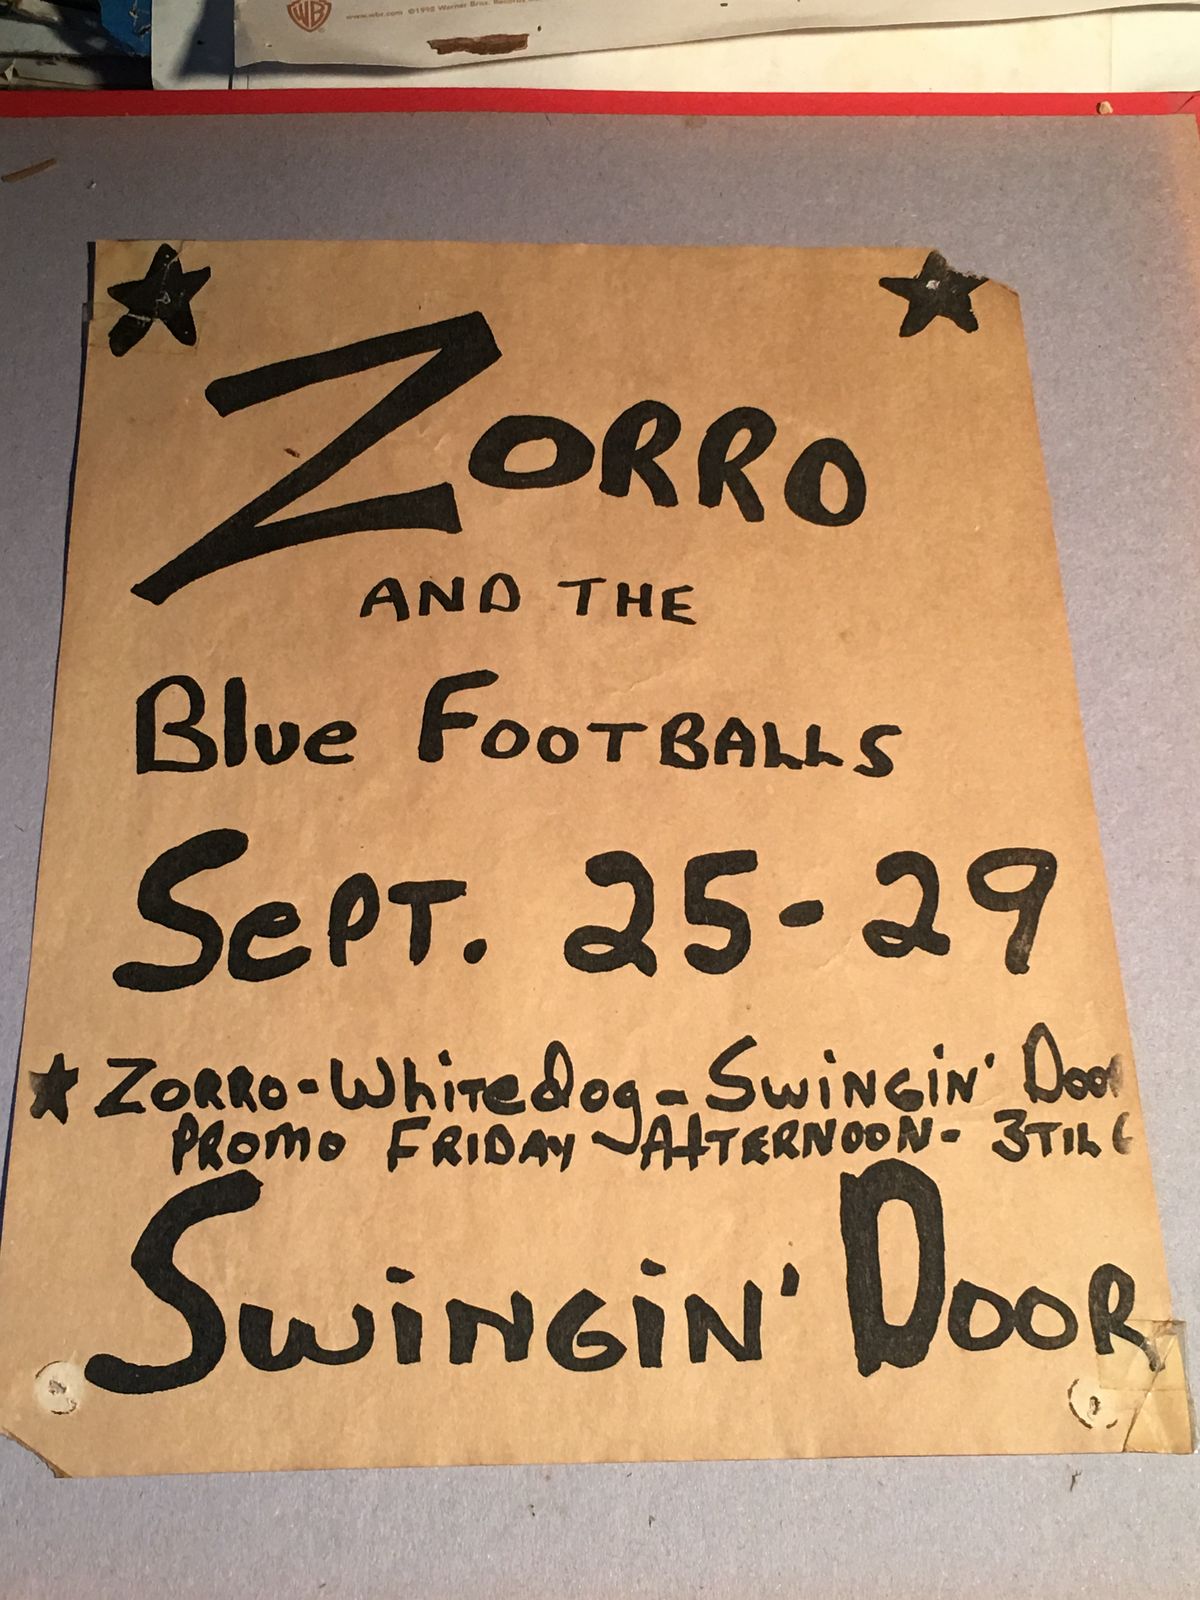 WB
www.wbr.com ©1998 Warner Bros. Records
ZORRO
AND THE
Blue FOOTBALLS
SePT. 25-29
ZORRO-WhiTedog-SWiNGiN' Door
PROMO FRIDAY - AFTERNOON- 3TIL 6
SWiNGiN' DOOR